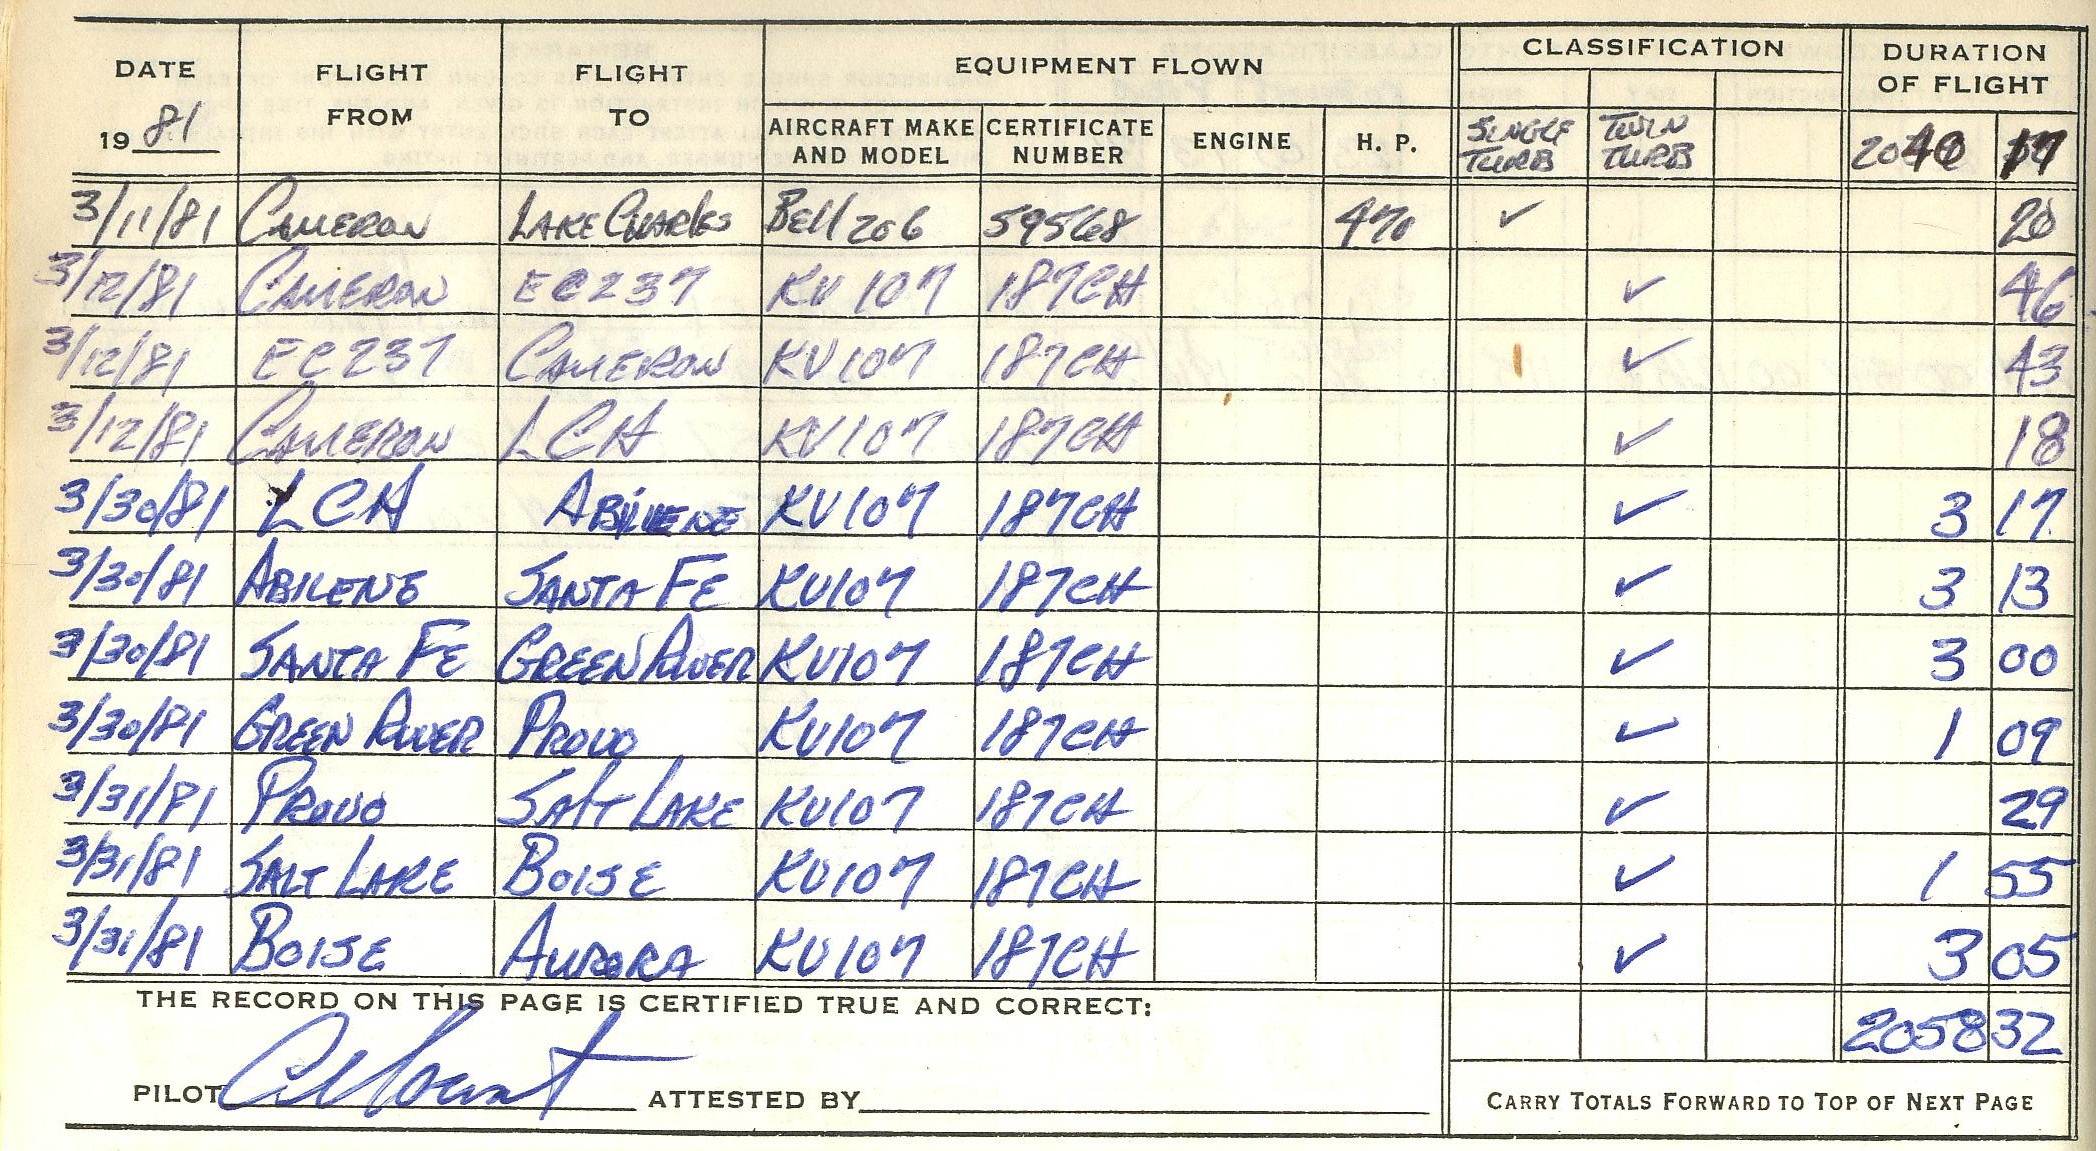 DATE FLIGHT FROM FLIGHT TO EQUIPMENT FLOWN CLASSIFICATION DURATION OF FLIGHT
1981 AIRCRAFT MAKE AND MODEL CERTIFICATE NUMBER ENGINE H. P. SINGLE TURB TWIN TURB 2040 17
3/11/81 CAMERON LAKE CHARLES BELL 206 59568 470 ✓ 20
3/12/81 CAMERON EC237 KV107 187CH ✓ 46
3/12/81 EC237 CAMERON KV107 187CH ✓ 43
3/12/81 CAMERON LCH KV107 187CH ✓ 18
3/30/81 LCH ABILENE KV107 187CH ✓ 3 17
3/30/81 ABILENE SANTA FE KV107 187CH ✓ 3 13
3/30/81 SANTA FE GREEN RIVER KV107 187CH ✓ 3 00
3/30/81 GREEN RIVER PROVO KV107 187CH ✓ 1 09
3/31/81 PROVO SALT LAKE KV107 187CH ✓ 29
3/31/81 SALT LAKE BOISE KV107 187CH ✓ 1 55
3/31/81 BOISE AURORA KV107 187CH ✓ 3 05
THE RECORD ON THIS PAGE IS CERTIFIED TRUE AND CORRECT:
2058 32
PILOT ATTESTED BY
CARRY TOTALS FORWARD TO TOP OF NEXT PAGE